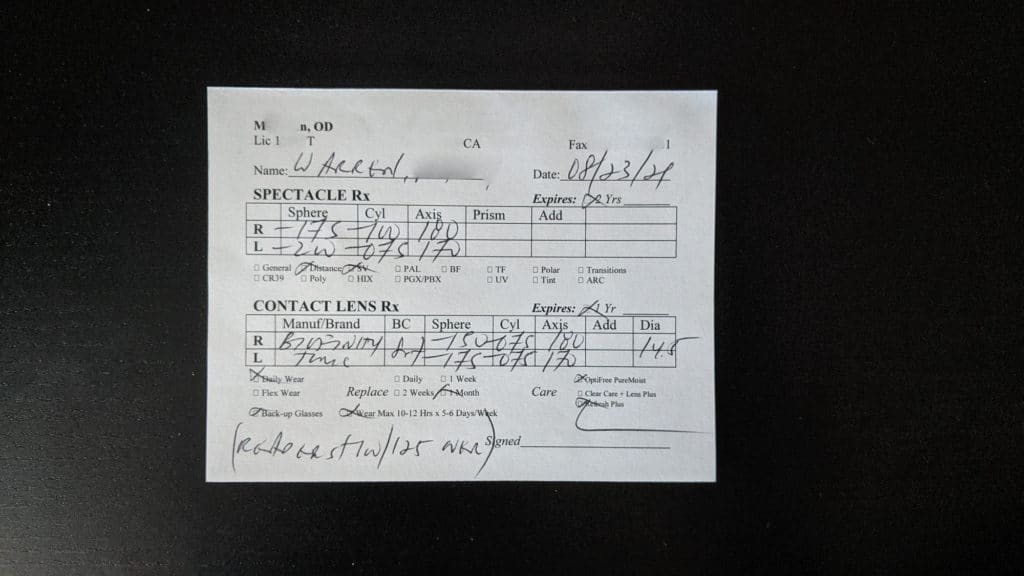 M n, OD
Lic 1 T CA Fax 1
Name: WARREN, Date: 08/23/21
SPECTACLE Rx Expires: 2 Yrs
Sphere Cyl Axis Prism Add
R -175 -100 180
L -200 -075 170
□ General □ Distance □ SV □ PAL □ BF □ TF □ Polar □ Transitions
□ CR39 □ Poly □ HIX □ PGX/PBX □ UV □ Tint □ ARC
CONTACT LENS Rx Expires: 1 Yr
Manuf/Brand BC Sphere Cyl Axis Add Dia
R BIOFINITY -150 -075 180 14.5
L TORIC -175 -075 170
□ Daily Wear □ Daily □ 1 Week □ OptiFree PureMoist
□ Flex Wear Replace □ 2 Weeks □ 1 Month Care □ Clear Care + Lens Plus
□ Back-up Glasses □ Wear Max 10-12 Hrs x 5-6 Days/Week □ Refresh Plus
(READERS +100/125 Signed